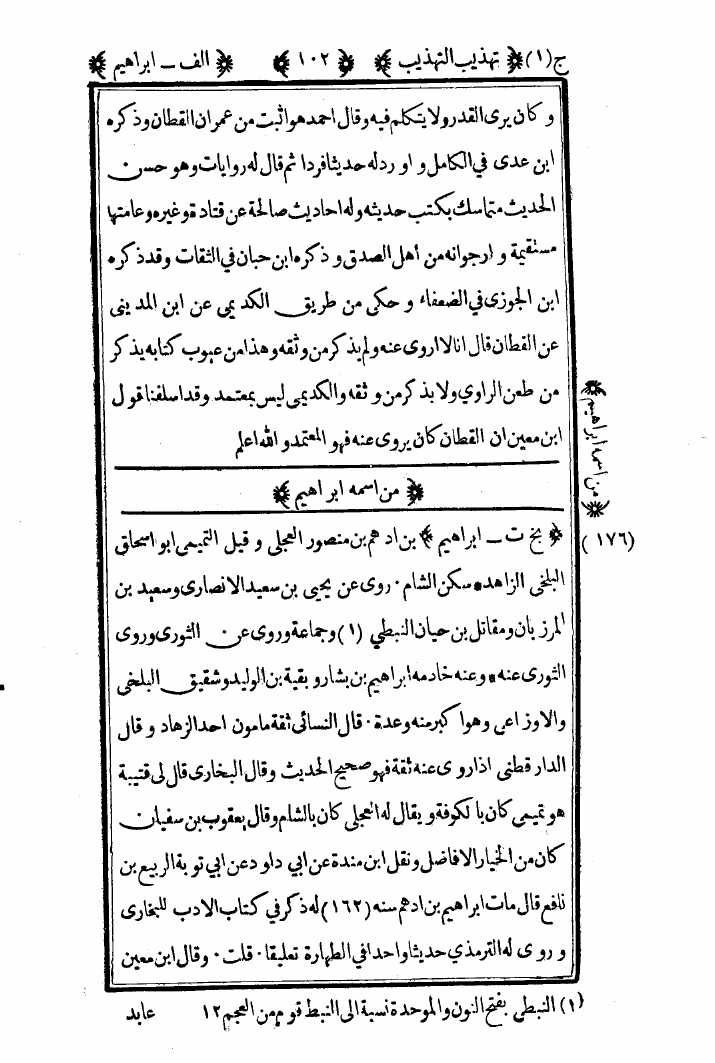 ج(١) ﴿ تهذيب التهذيب ﴾ ﴿ ١٠٢ ﴾ ﴿ الف ــ ابراهيم ﴾
وكان يرى القدر ولا يتكلم فيه وقال احمد هو اثبت من عمران القطان وذكره
ابن عدى في الكامل و اورد له حديثا فردا ثم قال له روايات وهو حسن
الحديث متماسك يكتب حديثه وله احاديث صالحة عن قتادة وغيره وعامتها
مستقيمة و ارجو انه من أهل الصدق و ذكره ابن حبان في الثقات وقد ذكره
ابن الجوزى في الضعفاء و حكى من طريق الكديمى عن ابن المدينى
عن القطان قال انا لا اروى عنه ولم يذكر من وثقه وهذا من عيوب كتابه يذكر
من طعن الراوي ولا يذكر من وثقه والكديمى ليس بمعتمد وقد اسلفنا قول
ابن معين ان القطان كان يروى عنه فهو المعتمد والله اعلم
﴿ من اسمه ابراهيم ﴾
﴿ من اسمه ابراهيم ﴾
(١٧٦)
﴿ بخ ت ــ ابراهيم ﴾ بن ادهم بن منصور العجلى و قيل التميمى ابو اسحاق
البلخى الزاهد * سكن الشام · روى عن يحيى بن سعيد الانصارى وسعيد بن
المرزبان ومقاتل بن حيان النبطي (١) وجماعة وروى عن الثورى وروى
الثورى عنه * وعنه خادمه ابراهيم بن بشار و بقية بن الوليد و شقيق البلخى
والاوزاعى وهو اكبر منه وعدة · قال النسائى ثقة مامون احد الزهاد و قال
الدار قطنى اذا روى عنه ثقة فهو صحيح الحديث وقال البخارى قال لى قتيبة
هو تميمى كان بالكوفة و يقال له العجلى كان بالشام وقال يعقوب بن سفيان
كان من الخيار الافاضل ونقل ابن مندة عن ابي داود عن ابي توبة الربيع بن
نافع قال مات ابراهيم بن ادهم سنه (١٦٢) له ذكر في كتاب الادب للبخارى
و روى له الترمذي حديثا واحدا في الطهارة تعليقا · قلت · وقال ابن معين
(١) النبطي بفتح النون والموحدة نسبة الى النبط قوم من العجم ١٢
عابد